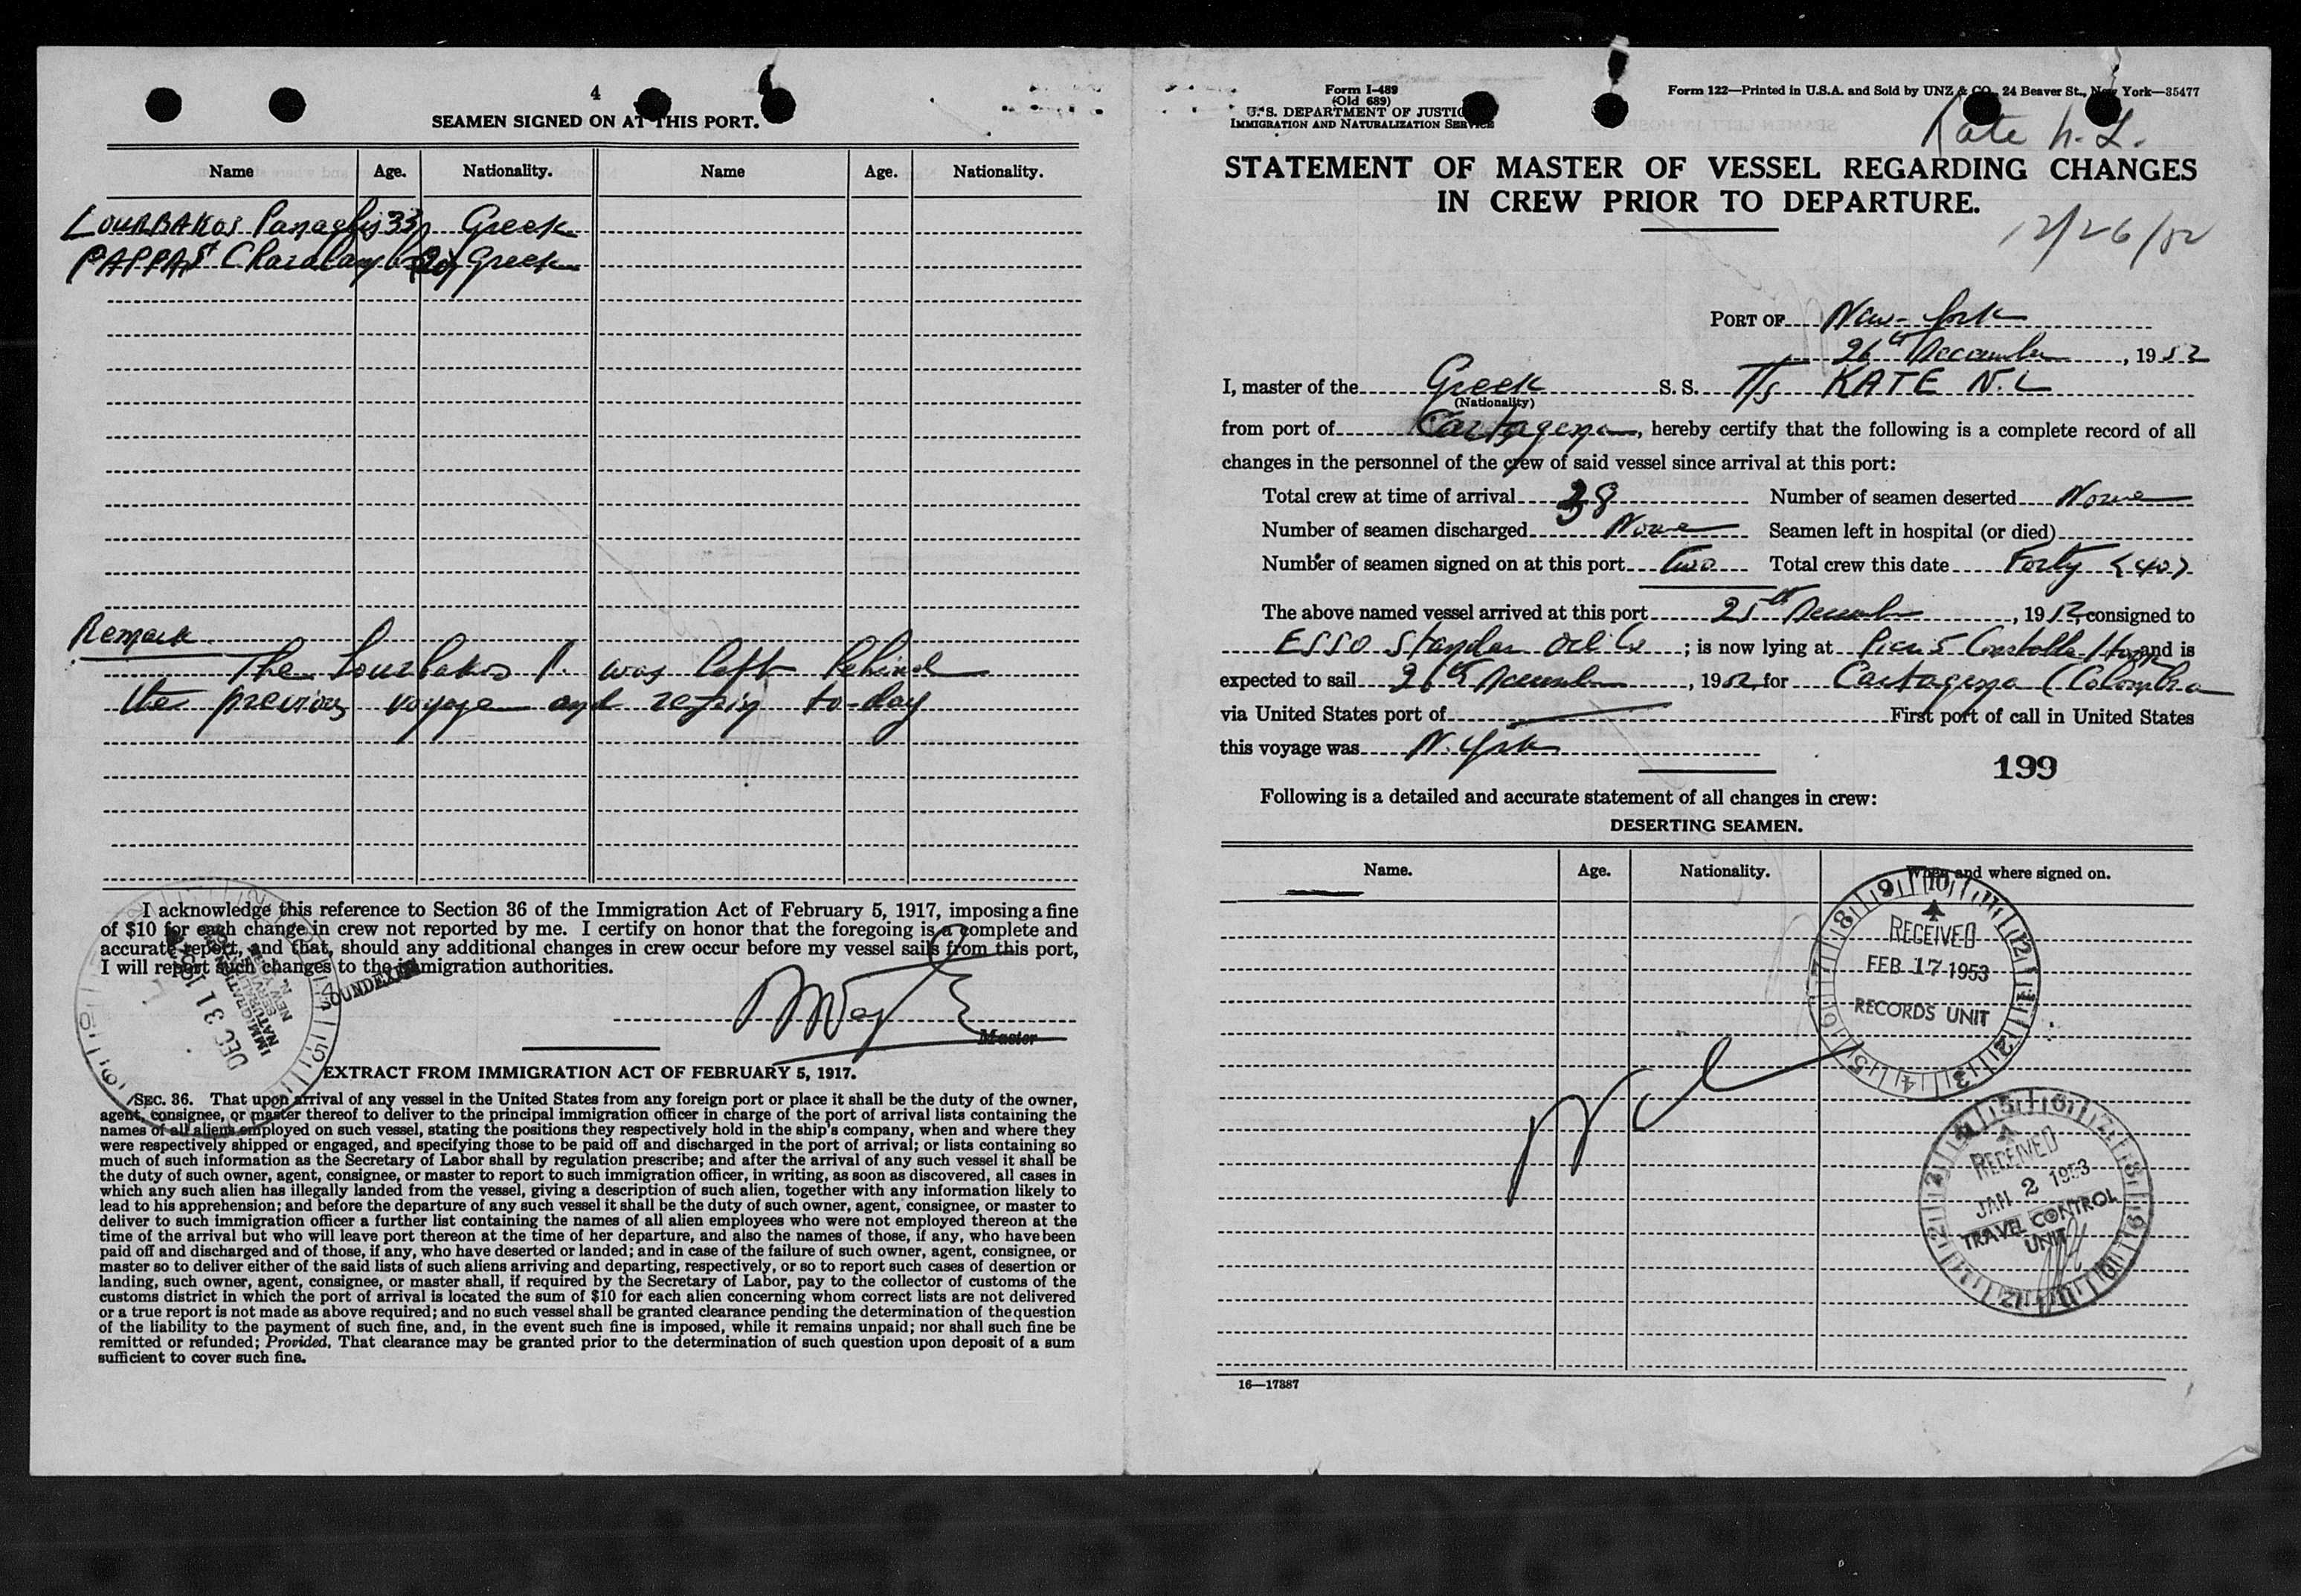 4
SEAMEN SIGNED ON AT THIS PORT.
Name Age. Nationality. Name Age. Nationality.
LOURBAKOS Panaghis 33 Greek
PAPPAS Charalamb Greek
Remark
The Lourbakos P. was left behind
the previous voyage and resign to-day
I acknowledge this reference to Section 36 of the Immigration Act of February 5, 1917, imposing a fine
of $10 for each change in crew not reported by me. I certify on honor that the foregoing is a complete and
accurate report, and that, should any additional changes in crew occur before my vessel sails from this port,
I will report such changes to the immigration authorities.
SOUNDEXED
DEC 31
IMMIGRATION
NATURAL
SERVICE
NEW YORK
Master
EXTRACT FROM IMMIGRATION ACT OF FEBRUARY 5, 1917.
SEC. 36. That upon arrival of any vessel in the United States from any foreign port or place it shall be the duty of the owner,
agent, consignee, or master thereof to deliver to the principal immigration officer in charge of the port of arrival lists containing the
names of all aliens employed on such vessel, stating the positions they respectively hold in the ship's company, when and where they
were respectively shipped or engaged, and specifying those to be paid off and discharged in the port of arrival; or lists containing so
much of such information as the Secretary of Labor shall by regulation prescribe; and after the arrival of any such vessel it shall be
the duty of such owner, agent, consignee, or master to report to such immigration officer, in writing, as soon as discovered, all cases in
which any such alien has illegally landed from the vessel, giving a description of such alien, together with any information likely to
lead to his apprehension; and before the departure of any such vessel it shall be the duty of such owner, agent, consignee, or master to
deliver to such immigration officer a further list containing the names of all alien employees who were not employed thereon at the
time of the arrival but who will leave port thereon at the time of her departure, and also the names of those, if any, who have been
paid off and discharged and of those, if any, who have deserted or landed; and in case of the failure of such owner, agent, consignee, or
master so to deliver either of the said lists of such aliens arriving and departing, respectively, or so to report such cases of desertion or
landing, such owner, agent, consignee, or master shall, if required by the Secretary of Labor, pay to the collector of customs of the
customs district in which the port of arrival is located the sum of $10 for each alien concerning whom correct lists are not delivered
or a true report is not made as above required; and no such vessel shall be granted clearance pending the determination of the question
of the liability to the payment of such fine, and, in the event such fine is imposed, while it remains unpaid; nor shall such fine be
remitted or refunded; Provided, That clearance may be granted prior to the determination of such question upon deposit of a sum
sufficient to cover such fine.
Form I-489
(Old 689)
U. S. DEPARTMENT OF JUSTICE
IMMIGRATION AND NATURALIZATION SERVICE
Form 122—Printed in U.S.A. and Sold by UNZ & CO., 24 Beaver St., New York—35477
Kate N. L.
STATEMENT OF MASTER OF VESSEL REGARDING CHANGES
IN CREW PRIOR TO DEPARTURE.
12/26/52
PORT OF New-York
26th December, 1952
I, master of the Greek S. S. T/s KATE N.L
(Nationality)
from port of Cartagena, hereby certify that the following is a complete record of all
changes in the personnel of the crew of said vessel since arrival at this port:
Total crew at time of arrival 38 Number of seamen deserted None
Number of seamen discharged None Seamen left in hospital (or died)
Number of seamen signed on at this port Two Total crew this date Forty (40)
The above named vessel arrived at this port 25th December, 1952, consigned to
ESSO Standar Oil Co; is now lying at Pier 5 and is
expected to sail 26th December, 1952, for Cartagena (Colombia
via United States port of First port of call in United States
this voyage was N. York
199
Following is a detailed and accurate statement of all changes in crew:
DESERTING SEAMEN.
Name. Age. Nationality. When and where signed on.
RECEIVED
FEB 17 1953
RECORDS UNIT
RECEIVED
JAN 2 1953
TRAVEL CONTROL
UNIT
16—17887